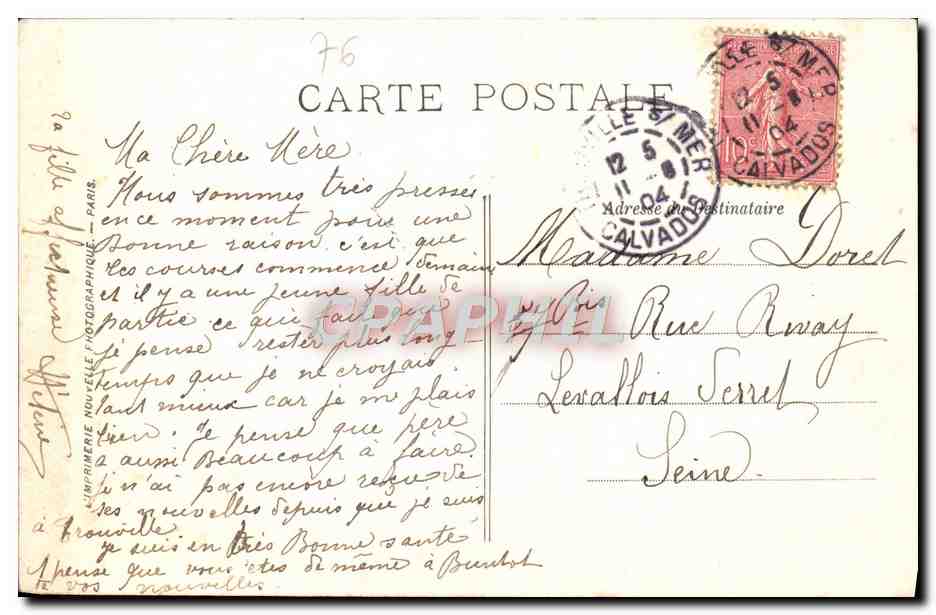 76
CARTE POSTALE
Ma Chère Mère.
Nous sommes très pressés
en ce moment pour une
Bonne raison c'est que
les courses commence demain
et il y a une jeune fille de
partie ce qui fait que
je pense rester plus long
temps que je ne croyais.
tant mieux car je me plais
bien. Je pense que père
a aussi Beaucoup à faire.
je n'ai pas encore reçu de
ses nouvelles depuis que je suis
à Trouville
je suis en très Bonne santé
pense que vous êtes de même à Bientot
vos nouvelles.
ta fille affectueuse
L'IMPRIMERIE NOUVELLE PHOTOGRAPHIQUE. — PARIS.
VILLE S/ MER
12 5
11 -8
04
CALVADOS
VILLE S/ MER
12 5
11 -8
04
CALVADOS
10c
Adresse du Destinataire
Madame Doret
Bis Rue Rivay
Levallois Perret
Seine.
CPAPHIL